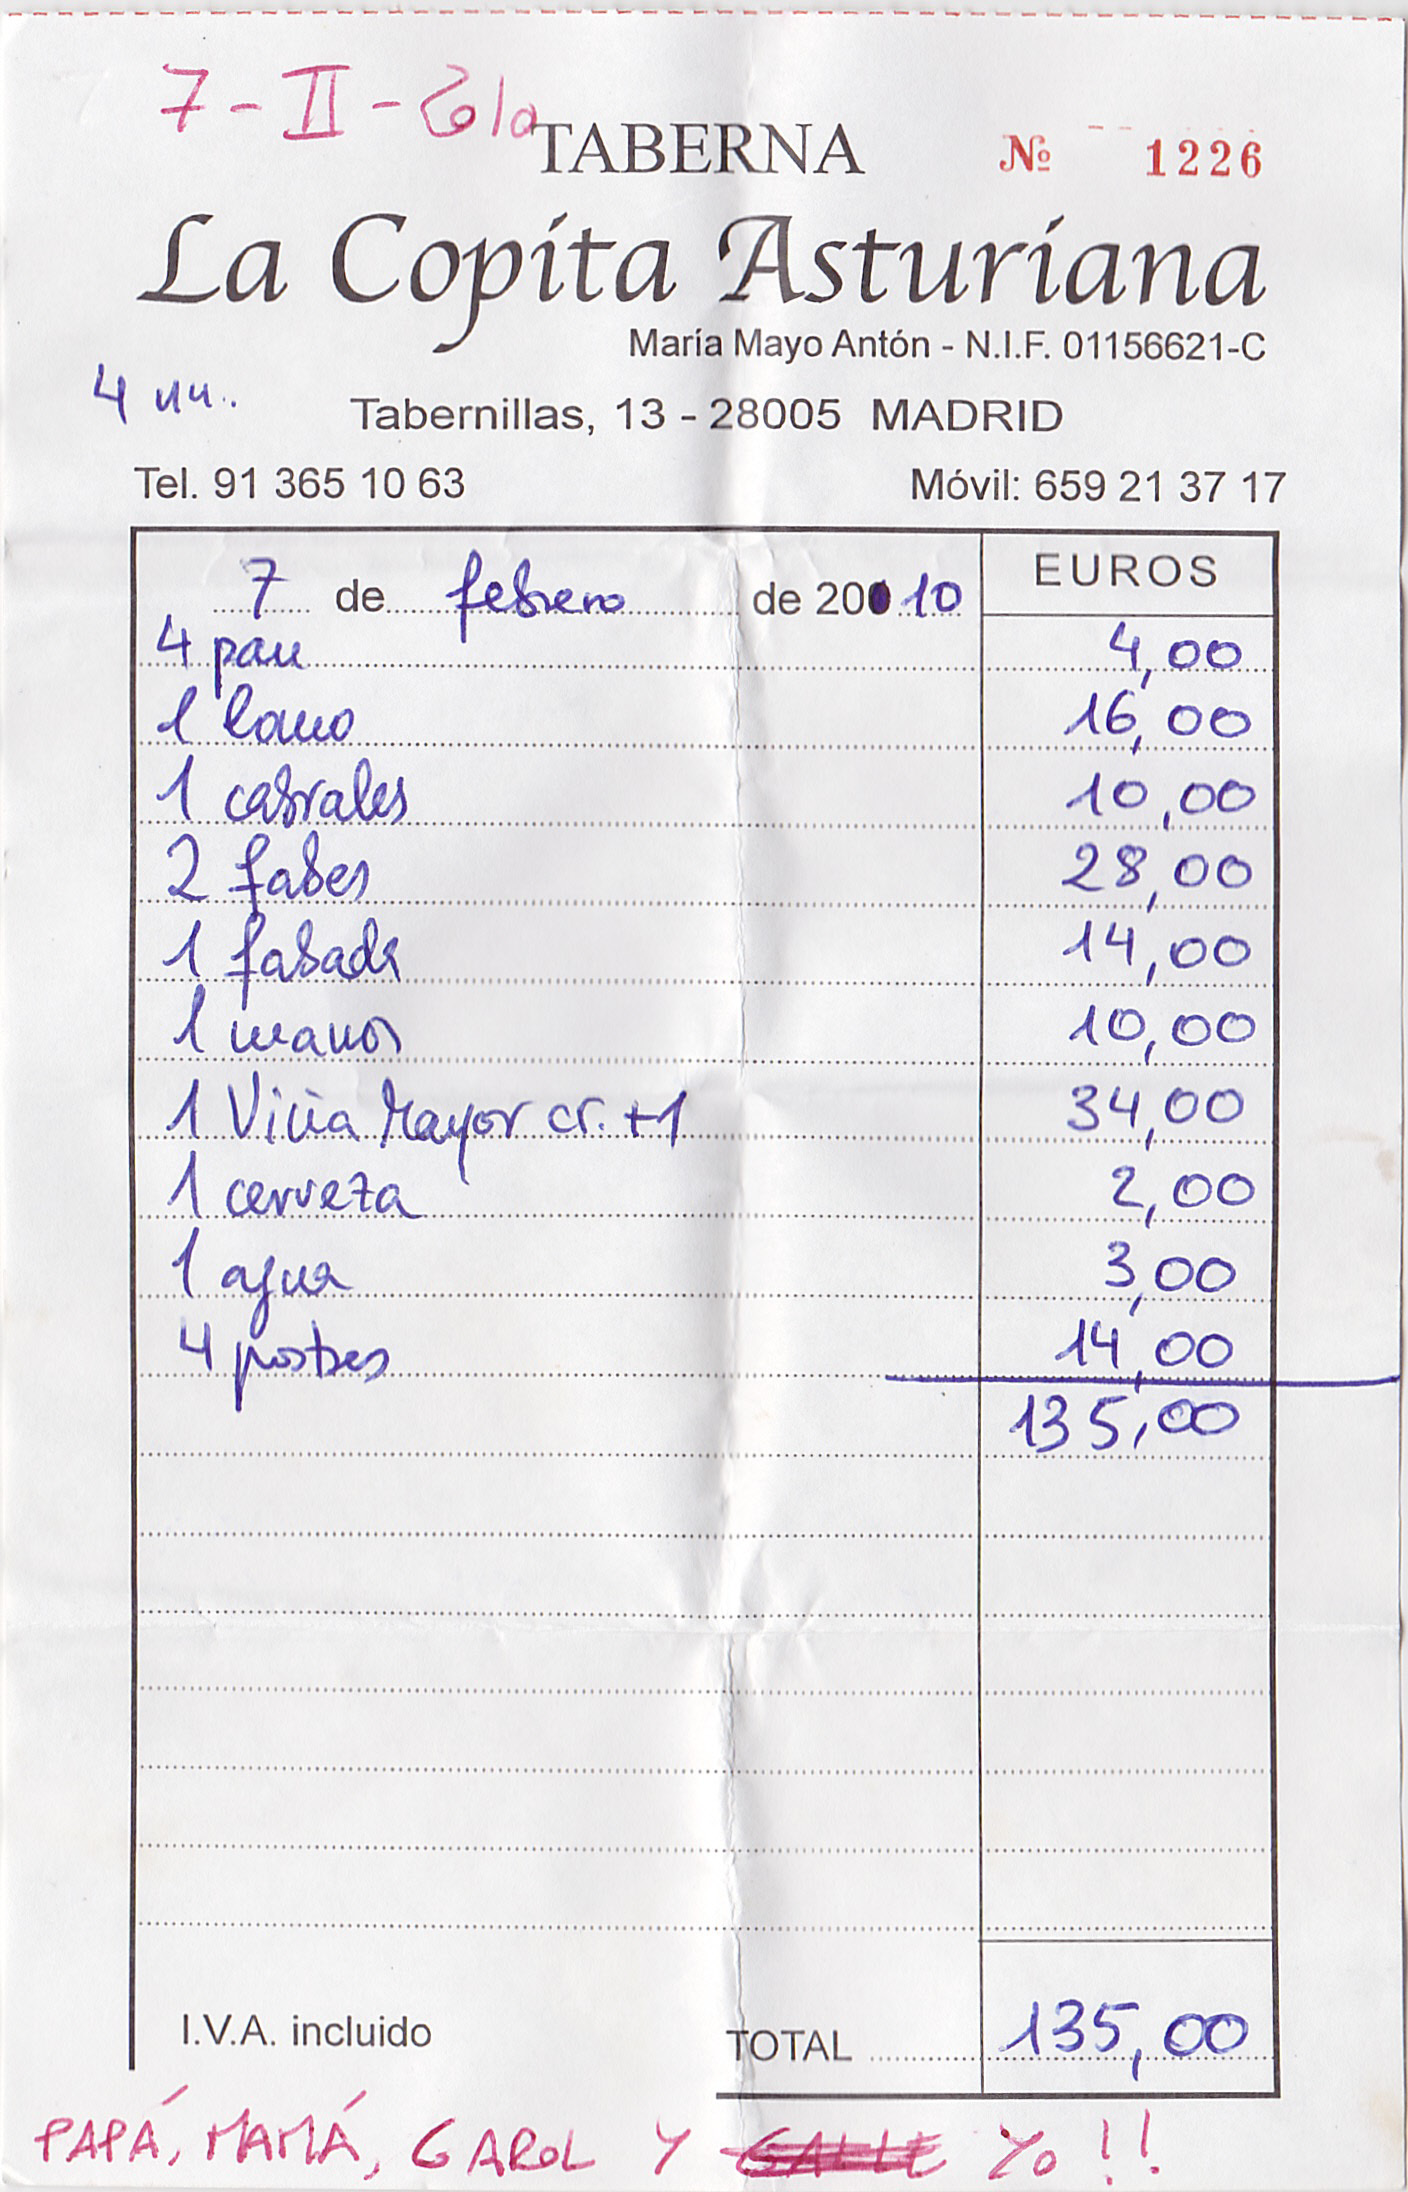 7-II-2010
TABERNA
Nº 1226
La Copita Asturiana
María Mayo Antón - N.I.F. 01156621-C
4
Tabernillas, 13 - 28005 MADRID
Tel. 91 365 10 63 Móvil: 659 21 37 17
7 de febrero de 2010 EUROS
4 pan 4,00
1 lomo 16,00
1 cabrales 10,00
2 fabes 28,00
1 fabada 14,00
1 manos 10,00
1 Viña Mayor cr. +1 34,00
1 cerveza 2,00
1 agua 3,00
4 postres 14,00
135,00
I.V.A. incluido TOTAL 135,00
PAPÁ, MAMÁ, CAROL Y YO!!